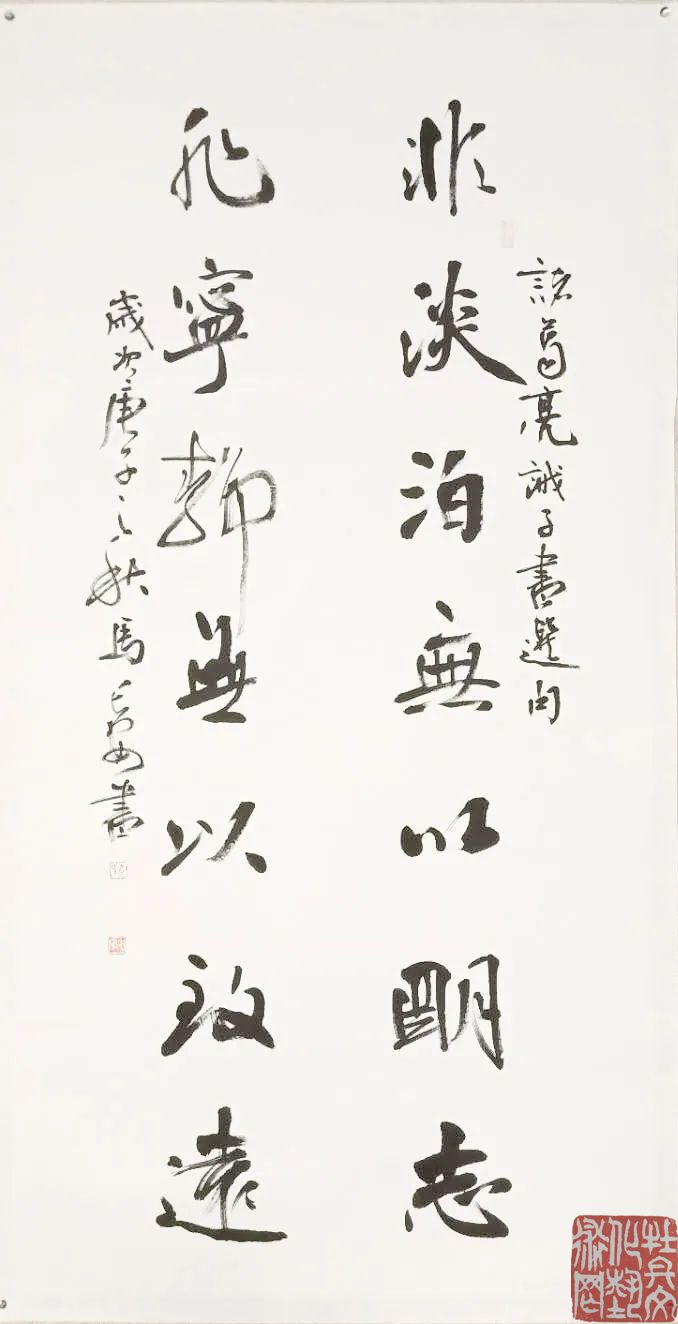 諸葛亮誡子書選句
非淡泊無以明志
非寧靜無以致遠
歲次庚子之秋馬書
牡丹文
化藝
術网